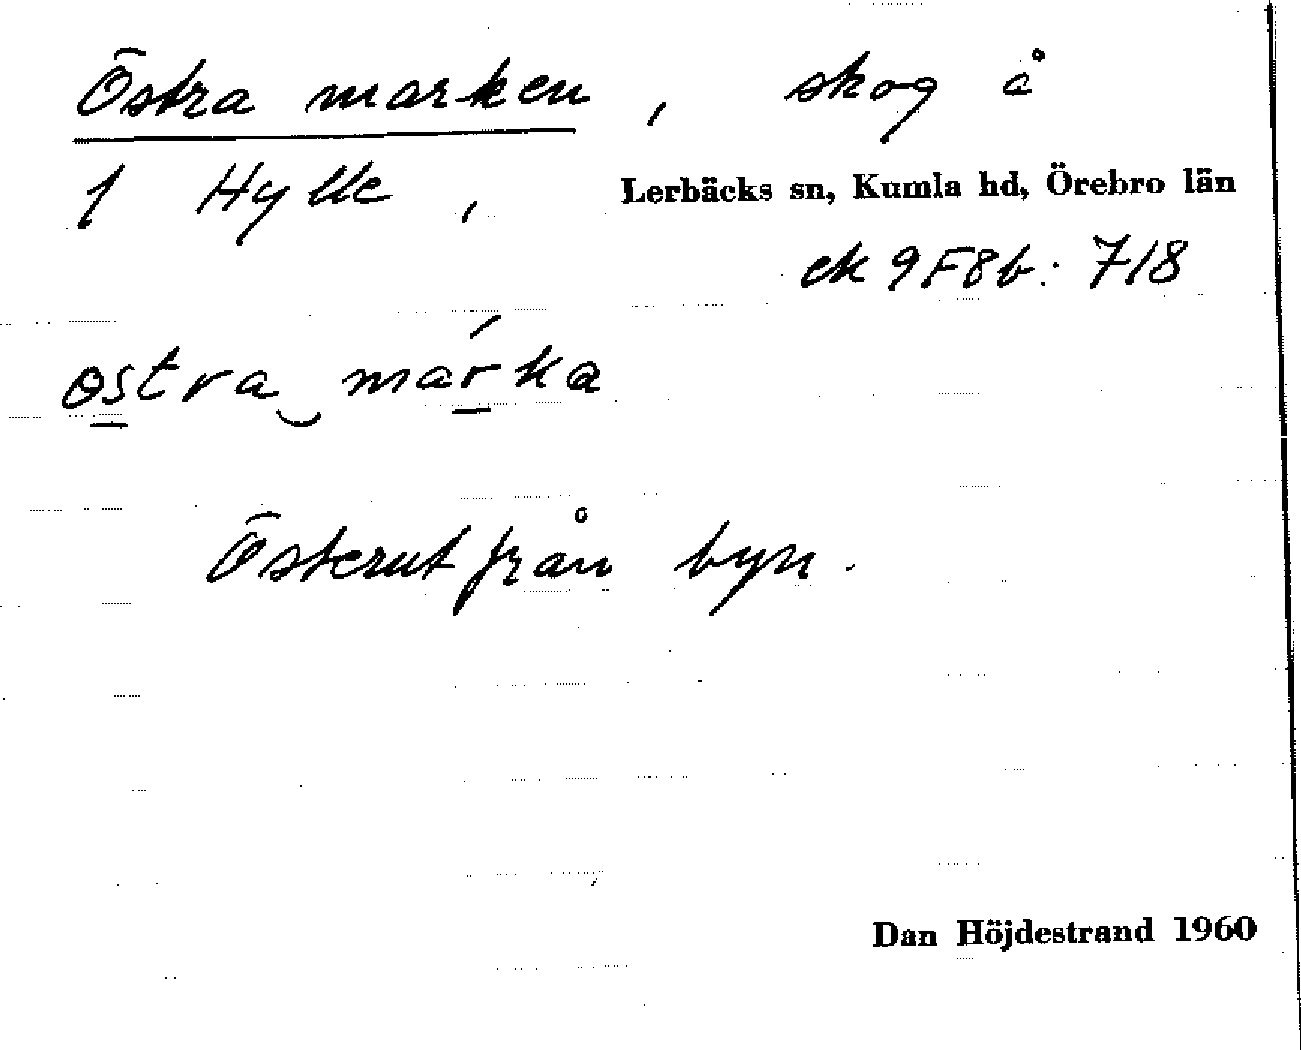 Östra marken, skog å
1 Hylle, Lerbäcks sn, Kumla hd, Örebro län
ek 9F8b: 718
ɵstra‿márka
Österut från byn.
Dan Höjdestrand 1960